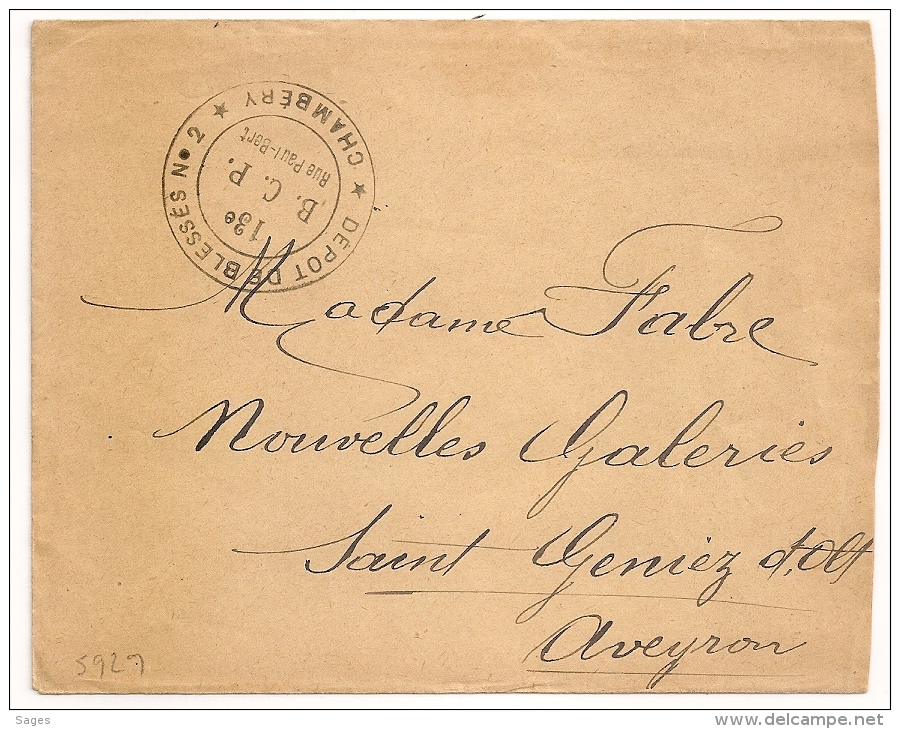 DÉPOT DE BLESSÉS No 2 ★ CHAMBÉRY ★
13e
B. C. P.
Rue Paul-Bert
Madame Fabre
Nouvelles Galeries
Saint Geniez d'Olt
Aveyron
5929
Sages
www.delcampe.net